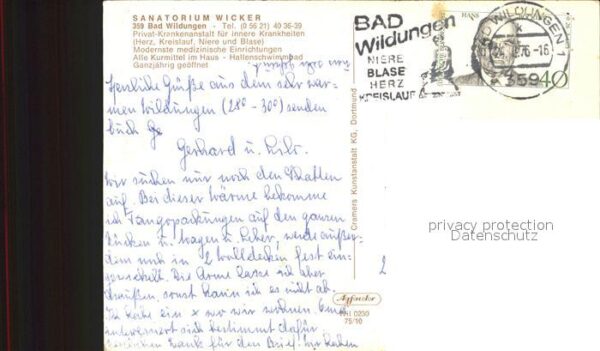 SANATORIUM WICKER
359 Bad Wildungen - Tel. (0 56 21) 40 36-39
Privat-Krankenanstalt für innere Krankheiten
(Herz, Kreislauf, Niere und Blase)
Modernste medizinische Einrichtungen
Alle Kurmittel im Haus - Hallenschwimmbad
Ganzjährig geöffnet
BAD
Wildungen
NIERE
BLASE
HERZ
KREISLAUF
BAD WILDUNGEN 1
76-16
3590
40
HANS
Herzliche Grüße aus dem sehr war-
men Wildungen (28° - 30°) senden
Euch
Gerhard u.
Wir suchen nur noch den Schatten
auf. Bei dieser Wärme bekomme
ich Fangopackungen auf den ganzen
Rücken u. Magen u. Leber, werde außer-
dem noch in 2 Wolldecken fest ein-
gewickelt. Die Arme lasse ich aber
draußen, sonst kann ich es nicht ab.
Ich habe ein x wo wir wohnen.
interessiert sich bestimmt dafür
Dank für den Brief. Wir haben
Cramers Kunstanstalt KG, Dortmund
privacy protection
Datenschutz
2
Agfacolor
WHI 0230
75/10